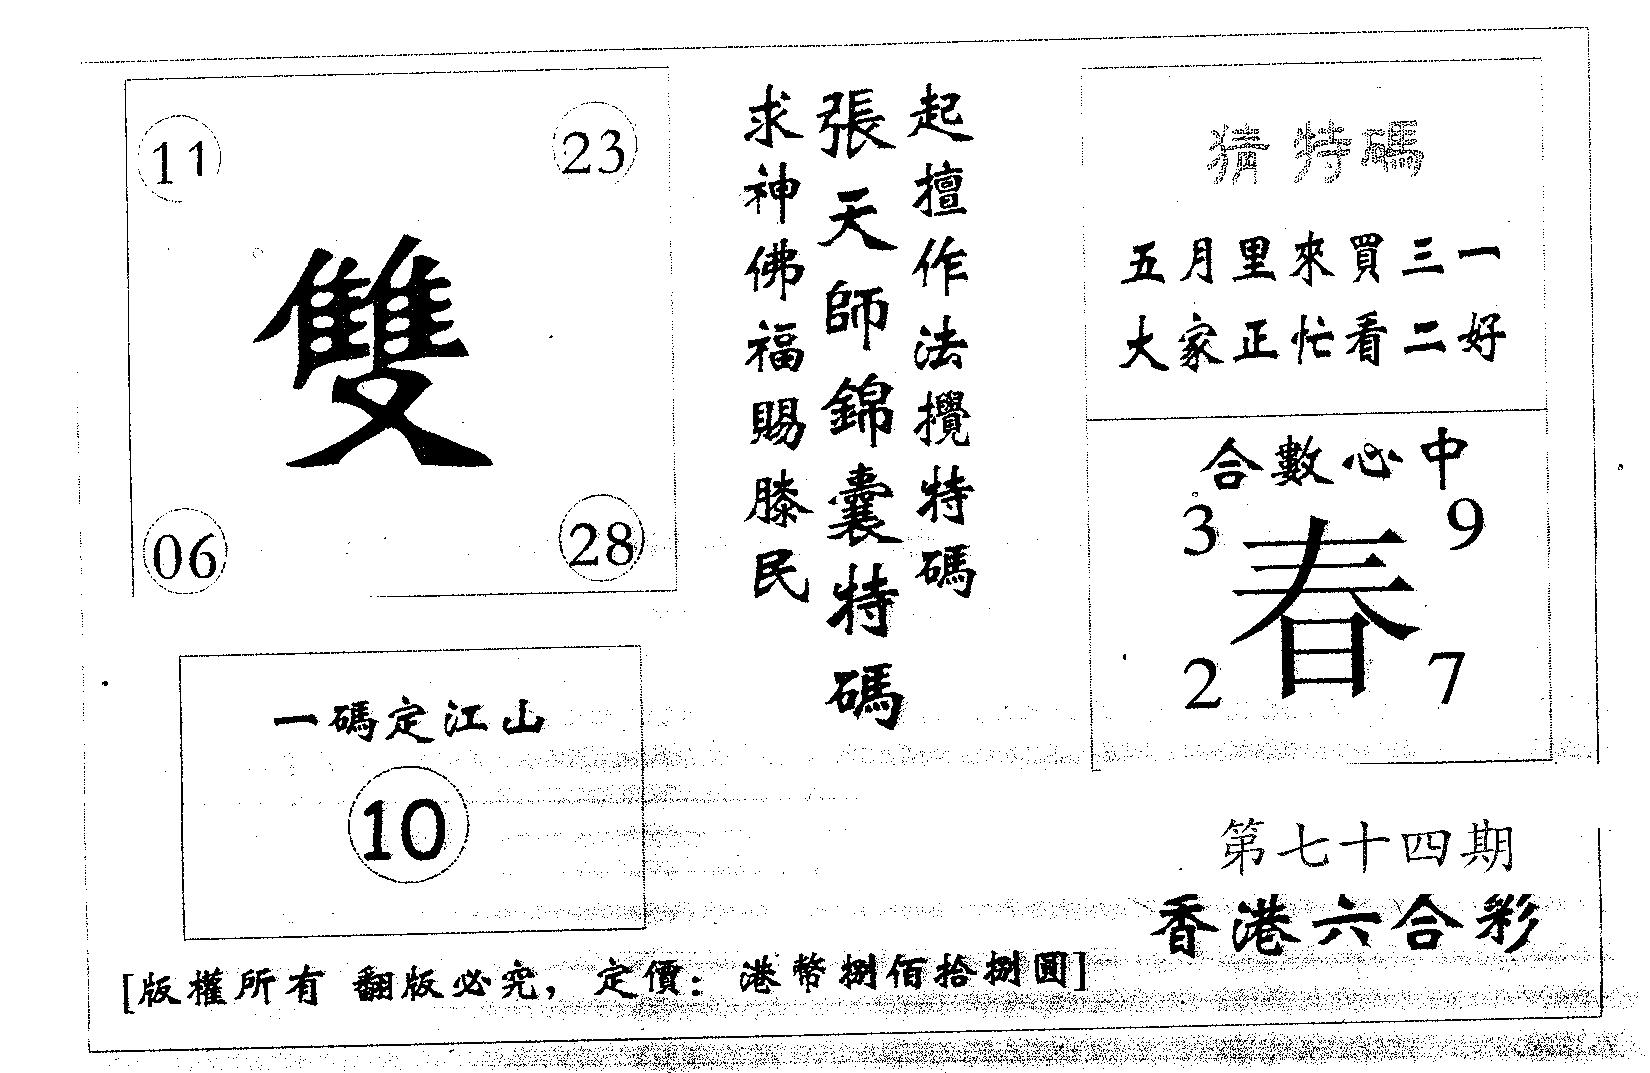 11
23
雙
06
28
一碼定江山
10
起擅作法攪特碼
張天師錦囊特碼
求神佛福賜膝民
猜特碼
五月里來買三一
大家正忙看二好
合數心中
3
9
春
2
7
第七十四期
香港六合彩
[版權所有 翻版必究，定價：港幣捌佰拾捌圓]